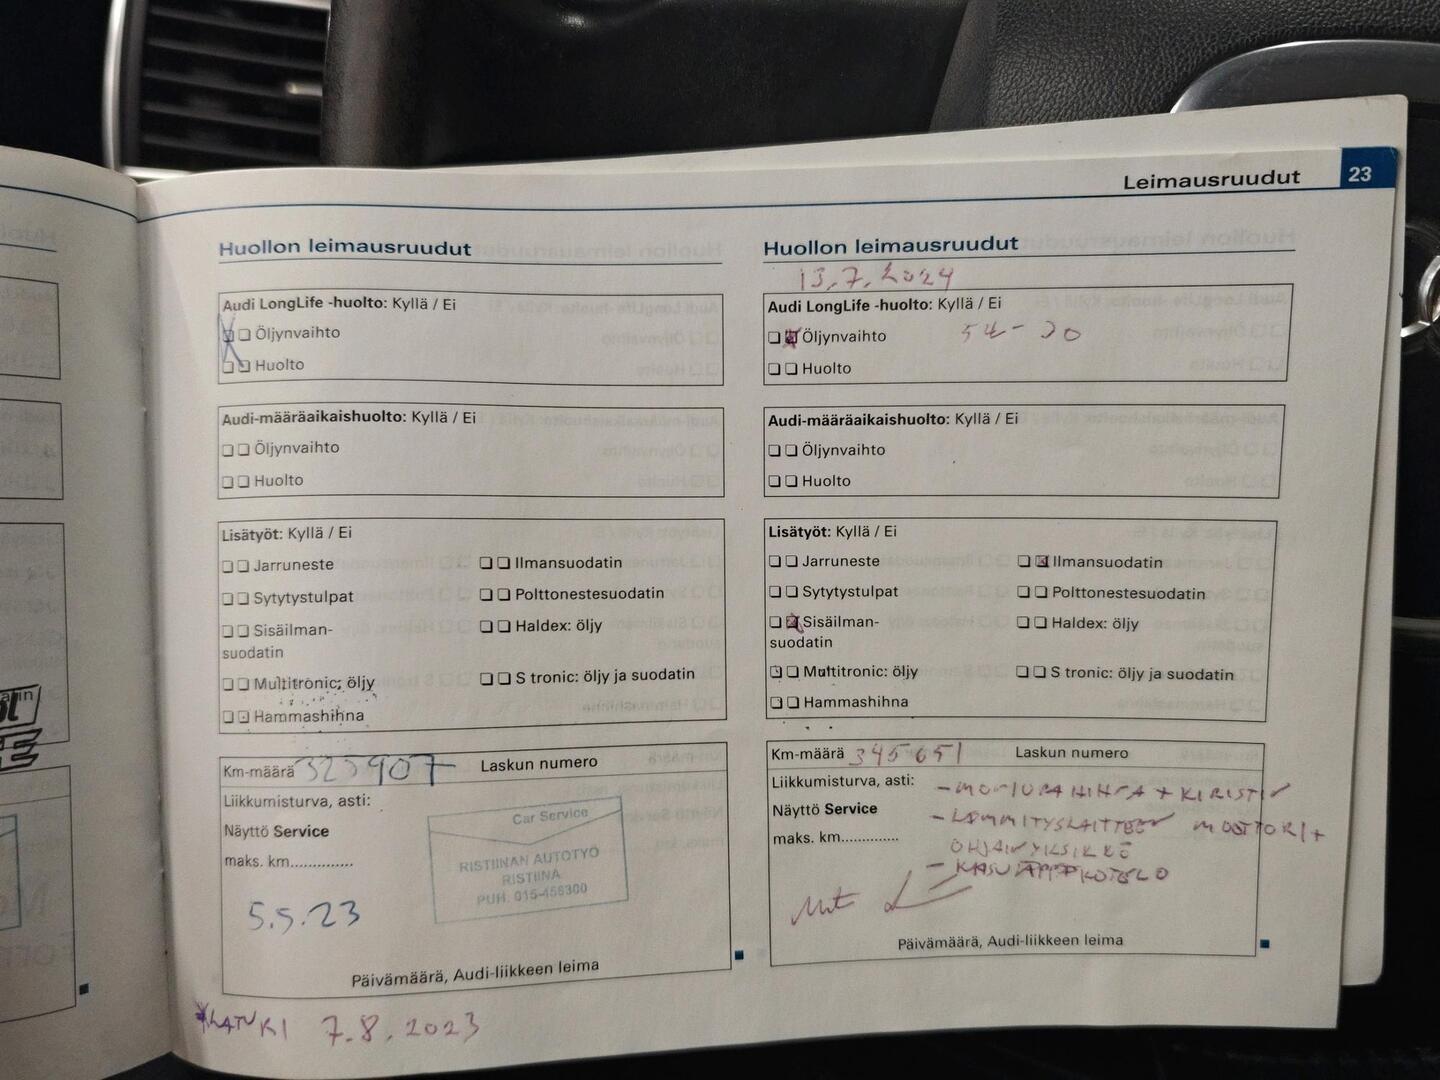 Leimausruudut 23
Huollon leimausruudut
Audi LongLife -huolto: Kyllä / Ei
Öljynvaihto
Huolto
Audi-määräaikaishuolto: Kyllä / Ei
Öljynvaihto
Huolto
Lisätyöt: Kyllä / Ei
Jarruneste Ilmansuodatin
Sytytystulpat Polttonestesuodatin
Sisäilman- Haldex: öljy
suodatin
Multitronic: öljy S tronic: öljy ja suodatin
Hammashihna
Km-määrä 323907 Laskun numero
Liikkumisturva, asti:
Näyttö Service
maks. km..............
Car Service
RISTIINAN AUTOTYÖ
RISTIINA
PUH. 015-456300
5.5.23
Päivämäärä, Audi-liikkeen leima
LATURI 7.8.2023
Huollon leimausruudut
13.7.2024
Audi LongLife -huolto: Kyllä / Ei
Öljynvaihto 5W-30
Huolto
Audi-määräaikaishuolto: Kyllä / Ei
Öljynvaihto
Huolto
Lisätyöt: Kyllä / Ei
Jarruneste Ilmansuodatin
Sytytystulpat Polttonestesuodatin
Sisäilman- Haldex: öljy
suodatin
Multitronic: öljy S tronic: öljy ja suodatin
Hammashihna
Km-määrä 345651 Laskun numero
Liikkumisturva, asti:
- MONIURAHIHNA + KIRISTIN
Näyttö Service
- LÄMMITYSLAITTEEN MOOTTORI +
maks. km..............
OHJAINYKSIKKÖ
KOTELO
Päivämäärä, Audi-liikkeen leima